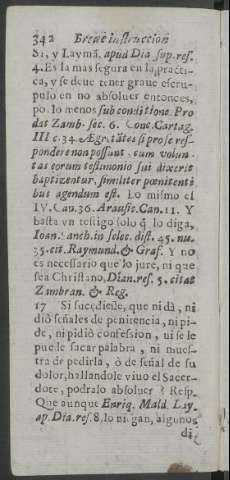 342 Breve instruccion
S1, y Laymã, apud Dia sup. res.
4. Es la mas segura en la practi-
ca, y se deue tener graue escru-
pulo en no absoluer entonces,
po. lo menos sub conditione. Pro
dat Zamb. sec. 6. Conc. Cartag.
III c. 34. Ægrotãtes si pro se res-
pondere non possunt, cum volun
tas eorum testimonio sui dixerit
baptizentur, similiter pœnitenti
bus agendum est. Lo mismo el
IV. Can. 36. Arausic. Can. 11. Y
basta vn testigo solo q̃ lo diga,
Ioan. Sanch. in selec. dist. 45. nu.
35. cit. Raymund. & Graf. Y no
es necessario que lo jure, ni que
sea Christiano, Dian. res. 5. citat
Zambran. & Reg.
17 Si sucediesse, que ni dà, ni
diò señales de penitencia, ni pi-
de, ni pidiò confession, ni se le
puede sacar palabra, ni mues-
tra de pedirla, ò de señal de su
dolor, hallandole viuo el Sacer-
dote, podralo absoluer? Resp.
Que aunque Enriq. Mald. Lay.
ap. Dia. res. 8. lo niegan, algunos
di-